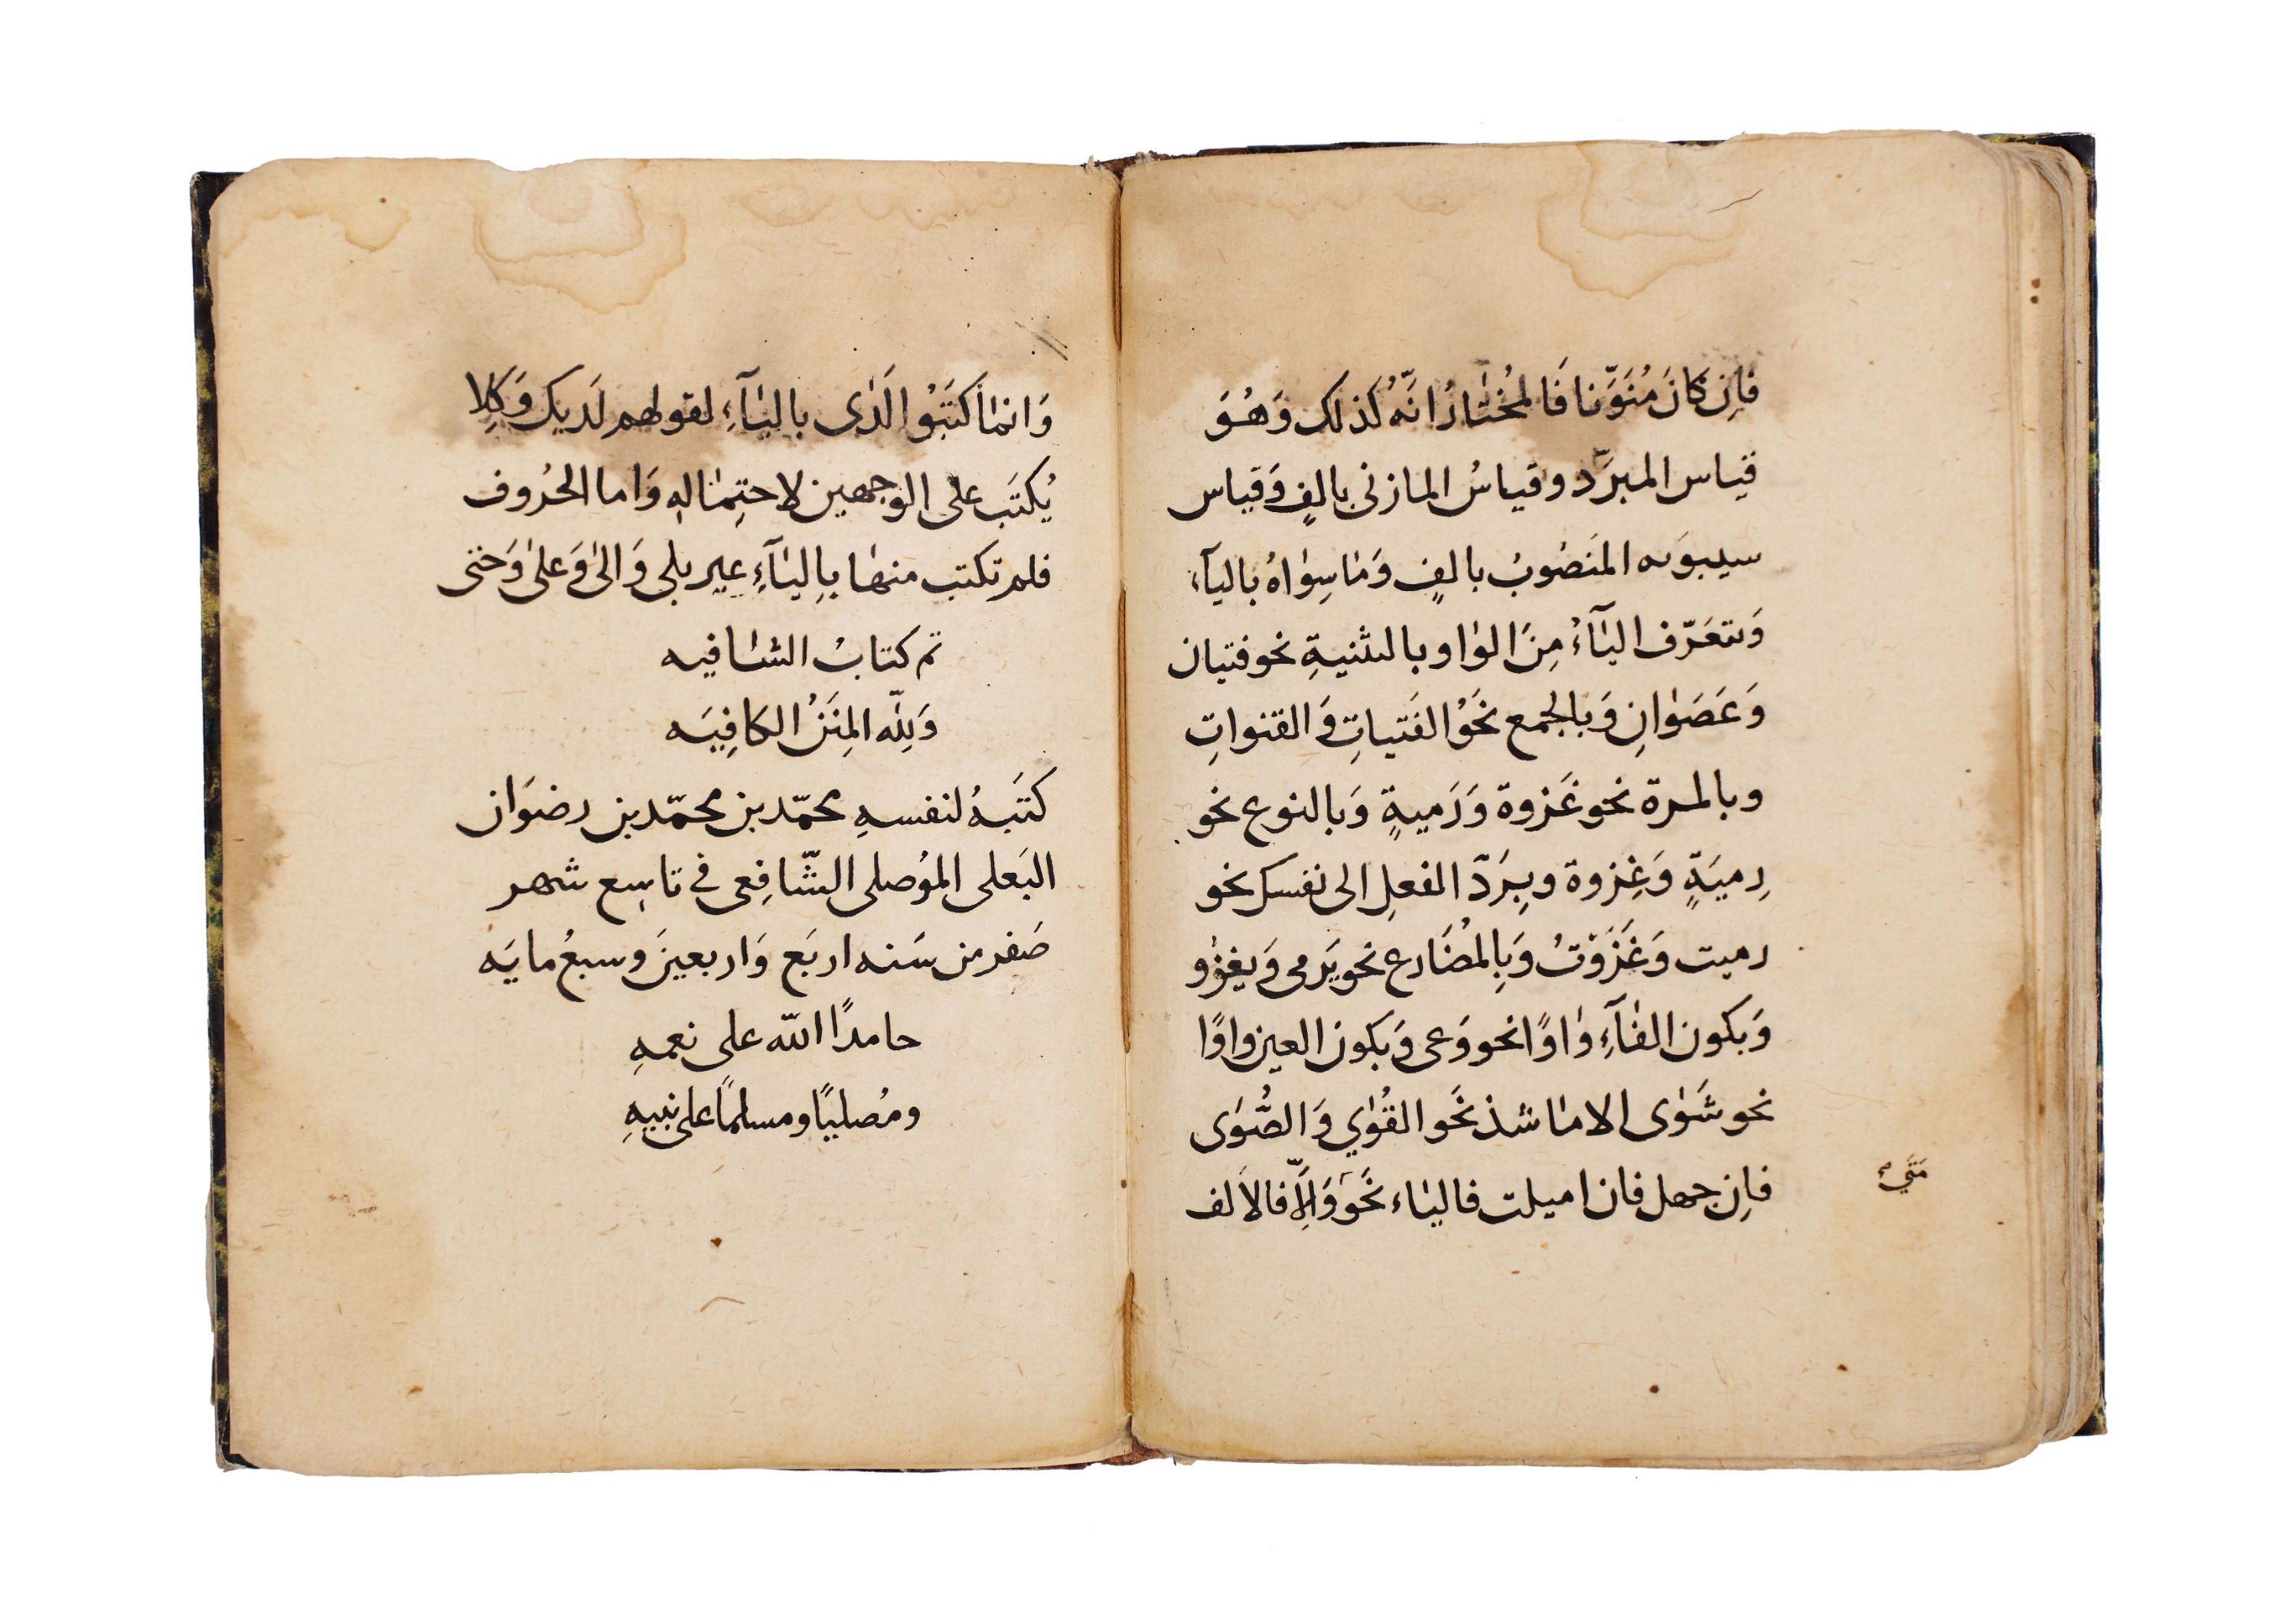 فَاِن كَانَ مُنَوَّنا فَالمُختٰارُ انَّهُ كَذلك وَهُوَ
قياس المبرَّد وقياسُ المازنى بالفٍ وَقياس
سيبوَيه المَنصُوبُ بالفٍ وَمٰا سِوٰاهُ باليآء
وَيتعَرّف اليٰآءُ مِنَ الوٰاو بالتثنيةِ نحو فتيان
وَعَصَوٰانِ وَبالجمع نحَوُ الفَتياتِ وَالقنواتِ
وبالمرة نحو غَزوة وَرَميةٍ وَبالنوع نحو
رِميَةٍ وَغِزوة وبِرَدّ الفعلِ الى نفسك نحو
رميت وَغَزَوْتُ وَبِالمُضَارع نحو يَرمى وَيغزُو
وَبكون الفٰآءِ وٰاوًا نحو وَعى وَبكون العين واوًا
نحو شَوٰى الا مٰا شذ نحَو القُوٰي وَالصُّوَى
فاِن جهل فان اميلت فاليٰاء نحَو وَاِلّا فالاَلف
مَتَي
وَانمٰا كَتَبُوا لَدٰى باليٰآءِ لقولهم لَديك وَكِلا
يُكتَب على الوجهين لاحتِمٰالهِ وَاما الحُروف
فلم تكتب منهٰا بِاليٰآءِ غير بلى وَالىٰ وَعلىٰ وَحَتى
تم كتابُ الشٰافيه
وَلِلّه المِنَنُ الكَافِيَه
كتَبهُ لنفسهِ محمّد بن محمّد بن رضوَان
البَعلى الموُصلى الشّافِعى في تاسِع شهر
صَفر من سَنه اربَع وَاربعينَ وسبعُ مايَه
حامدًا الله على نعمهِ
ومُصليًا ومسلمًا على نبيهِ